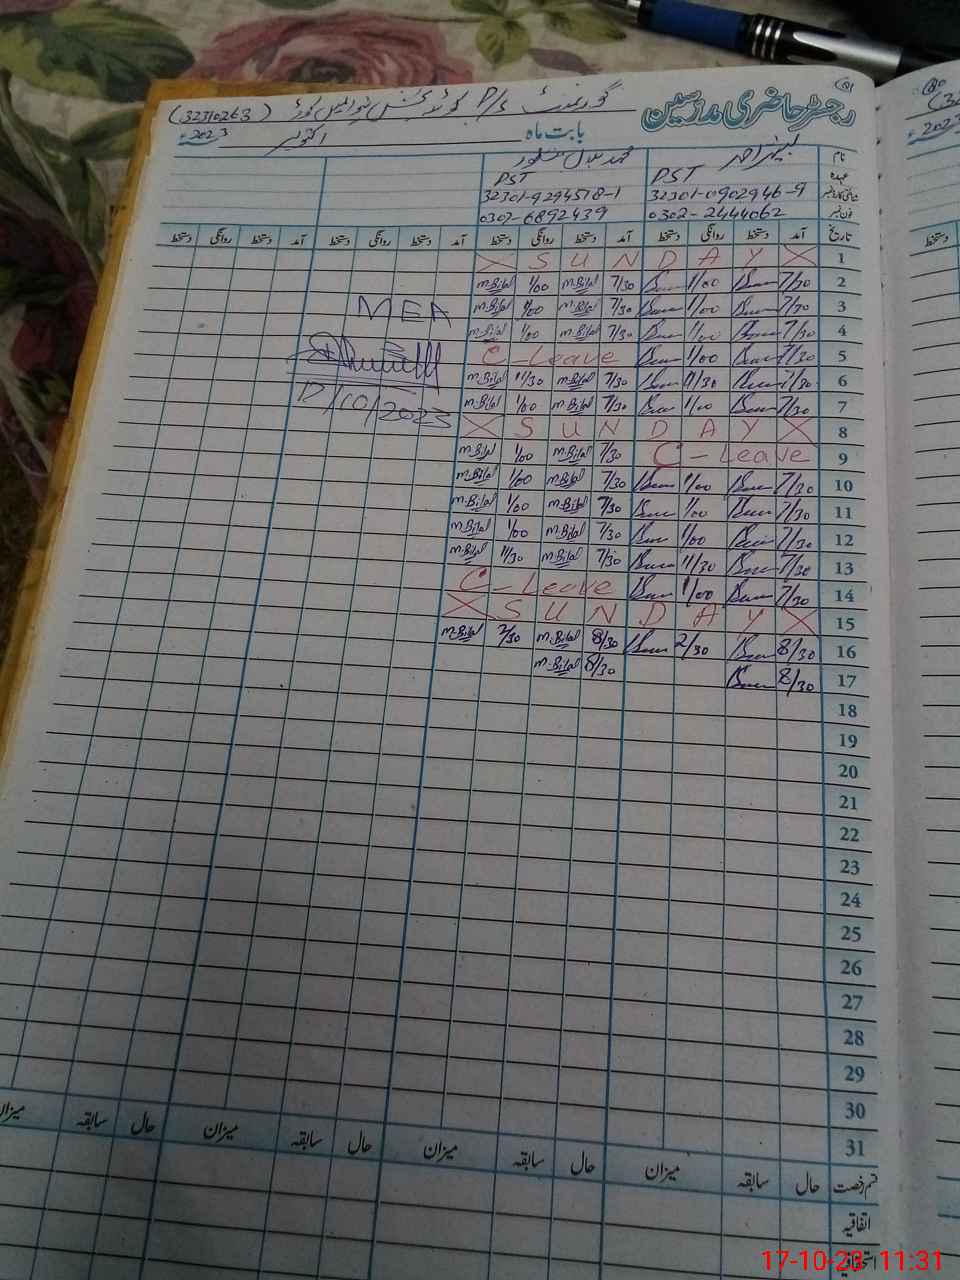 رجسٹر حاضری مدرسین
گورنمنٹ P/S (32310263)
بابت ماہ اکتوبر 2023ء
نام محمد بلال منظور
عہدہ PST PST
شناختی کارڈ نمبر 32301-0902946-9 32301-9294578-1
فون نمبر 0302-2444062 0307-6892439
تاریخ آمد دستخط روانگی دستخط آمد دستخط روانگی دستخط آمد دستخط روانگی دستخط آمد دستخط روانگی دستخط
1 X S U N D A Y X
2 7/30 1/00 7/30 M.Bilal 1/00 M.Bilal
3 7/30 1/00 7/30 M.Bilal 1/00 M.Bilal
MEA
4 7/30 1/00 7/30 M.Bilal 1/00 M.Bilal
5 7/30 1/00 C-Leave
6 7/30 11/30 7/30 M.Bilal 11/30 M.Bilal
7 7/30 1/00 7/30 M.Bilal 1/00 M.Bilal
17/10/2023
8 X S U N D A Y X
9 C-Leave 7/30 M.Bilal 1/00 M.Bilal
10 7/30 1/00 7/30 M.Bilal 1/00 M.Bilal
11 7/30 1/00 7/30 M.Bilal 1/00 M.Bilal
12 7/30 1/00 7/30 M.Bilal 1/00 M.Bilal
13 7/30 11/30 7/30 M.Bilal 11/30 M.Bilal
14 7/30 1/00 C-Leave
15 X S U N D A Y X
16 8/30 2/30 8/30 M.Bilal 2/30 M.Bilal
17 8/30 8/30 M.Bilal
18
19
20
21
22
23
24
25
26
27
28
29
30
31
قسم رخصت حال سابقہ میزان حال سابقہ میزان حال سابقہ میزان حال سابقہ میزان
اتفاقیہ
استحقاقیہ
17-10-23 11:31